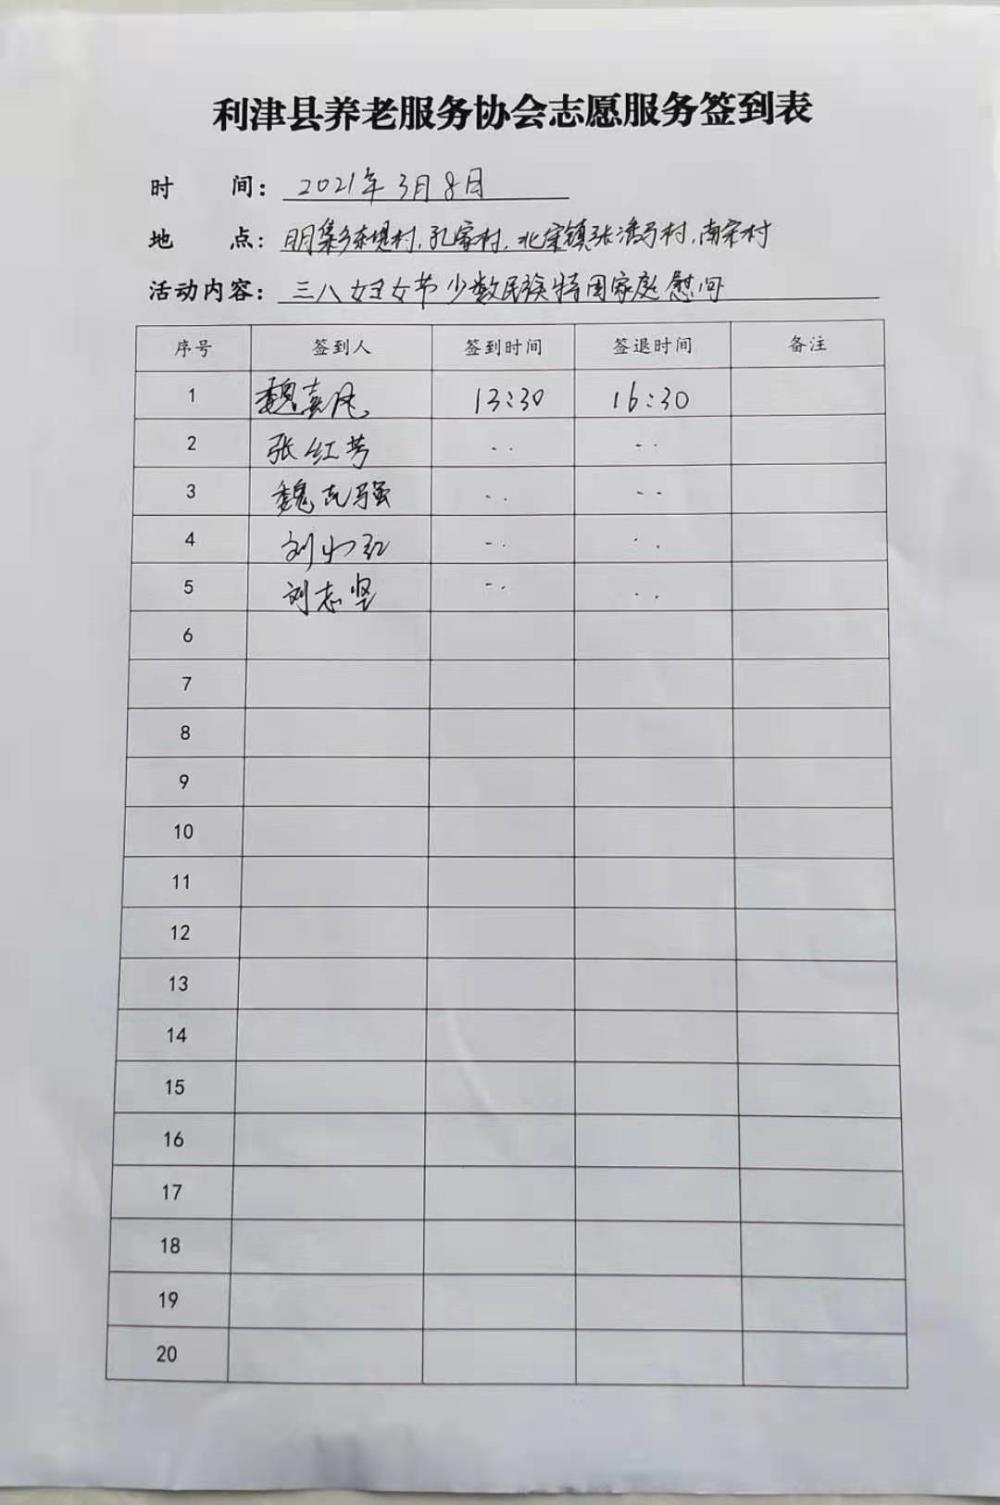 利津县养老服务协会志愿服务签到表
时 间: 2021年3月8日
地 点: 明集乡东堤村,孔家村,北宋镇张潘马村,南宋村
活动内容: 三八妇女节少数民族特困家庭慰问
序号 签到人 签到时间 签退时间 备注
1 魏 13:30 16:30
2 张红芳 .. ..
3 魏 强 .. ..
4 刘 红 .. ..
5 刘志坚 .. ..
6
7
8
9
10
11
12
13
14
15
16
17
18
19
20